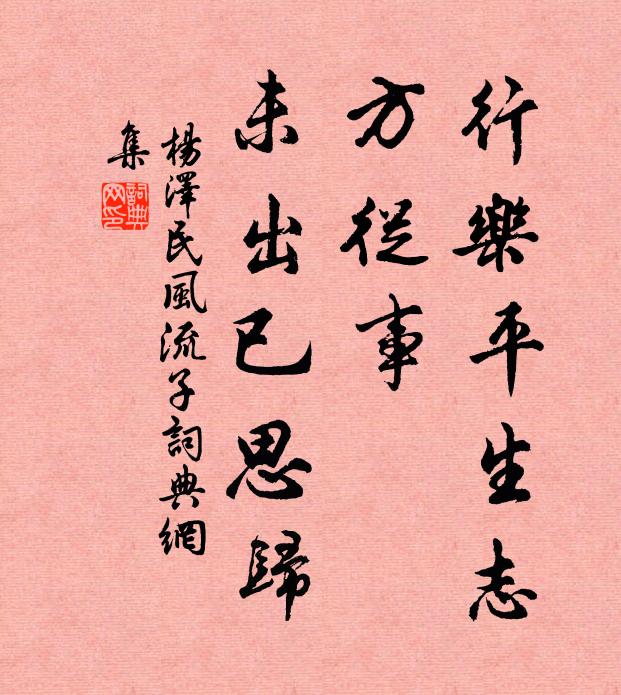 行樂平生志
方從事
未出已思歸
楊澤民風流子詞典網
集
詞典
网印